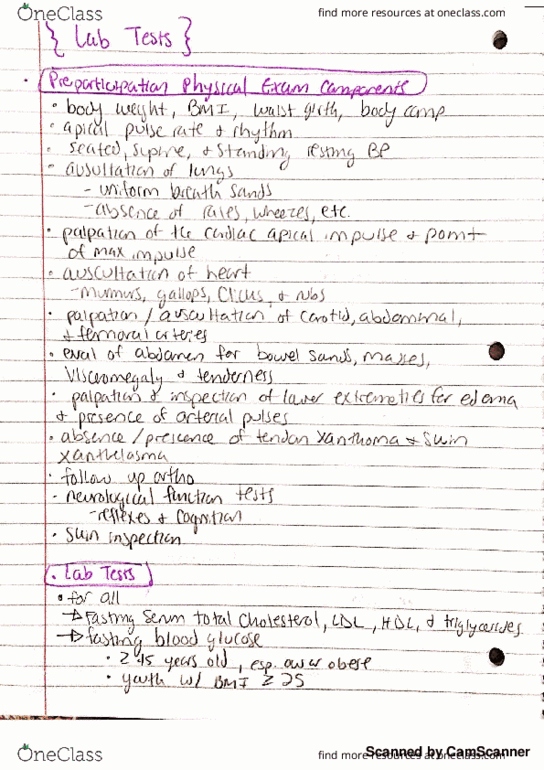 OneClass
find more resources at oneclass.com
{ Lab Tests }
· Preparticipation Physical Exam Components
· body weight, BMI, waist girth, body comp
· apical pulse rate & rhythm
· seated, supine, & standing resting BP
· ausultation of lungs
- uniform breath sounds
- absence of rales, wheezes, etc.
· palpation of the cardiac apical impulse & point
of max impulse
· auscultation of heart
- murmurs, gallops, clicks, & rubs
· palpation / auscultation of carotid, abdominal,
& femoral arteries
· eval of abdomen for bowel sounds, masses,
visceromegaly & tenderness
· palpation & inspection of lower extremeties for edema
& presence of arterial pulses
· absence / prescence of tendon xanthoma & skin
xanthelasma
· follow up ortho
· neurological function tests
- reflexes & cognition
· skin inspection
· Lab Tests
• for all
→ Fasting serum total cholesterol, LDL, HDL, & triglycerides
→ fasting blood glucose
• ≥ 45 years old, esp. over obese
• youth w/ BMI ≥ 25
OneClass
find more resources at oneclass.com
Scanned by CamScanner